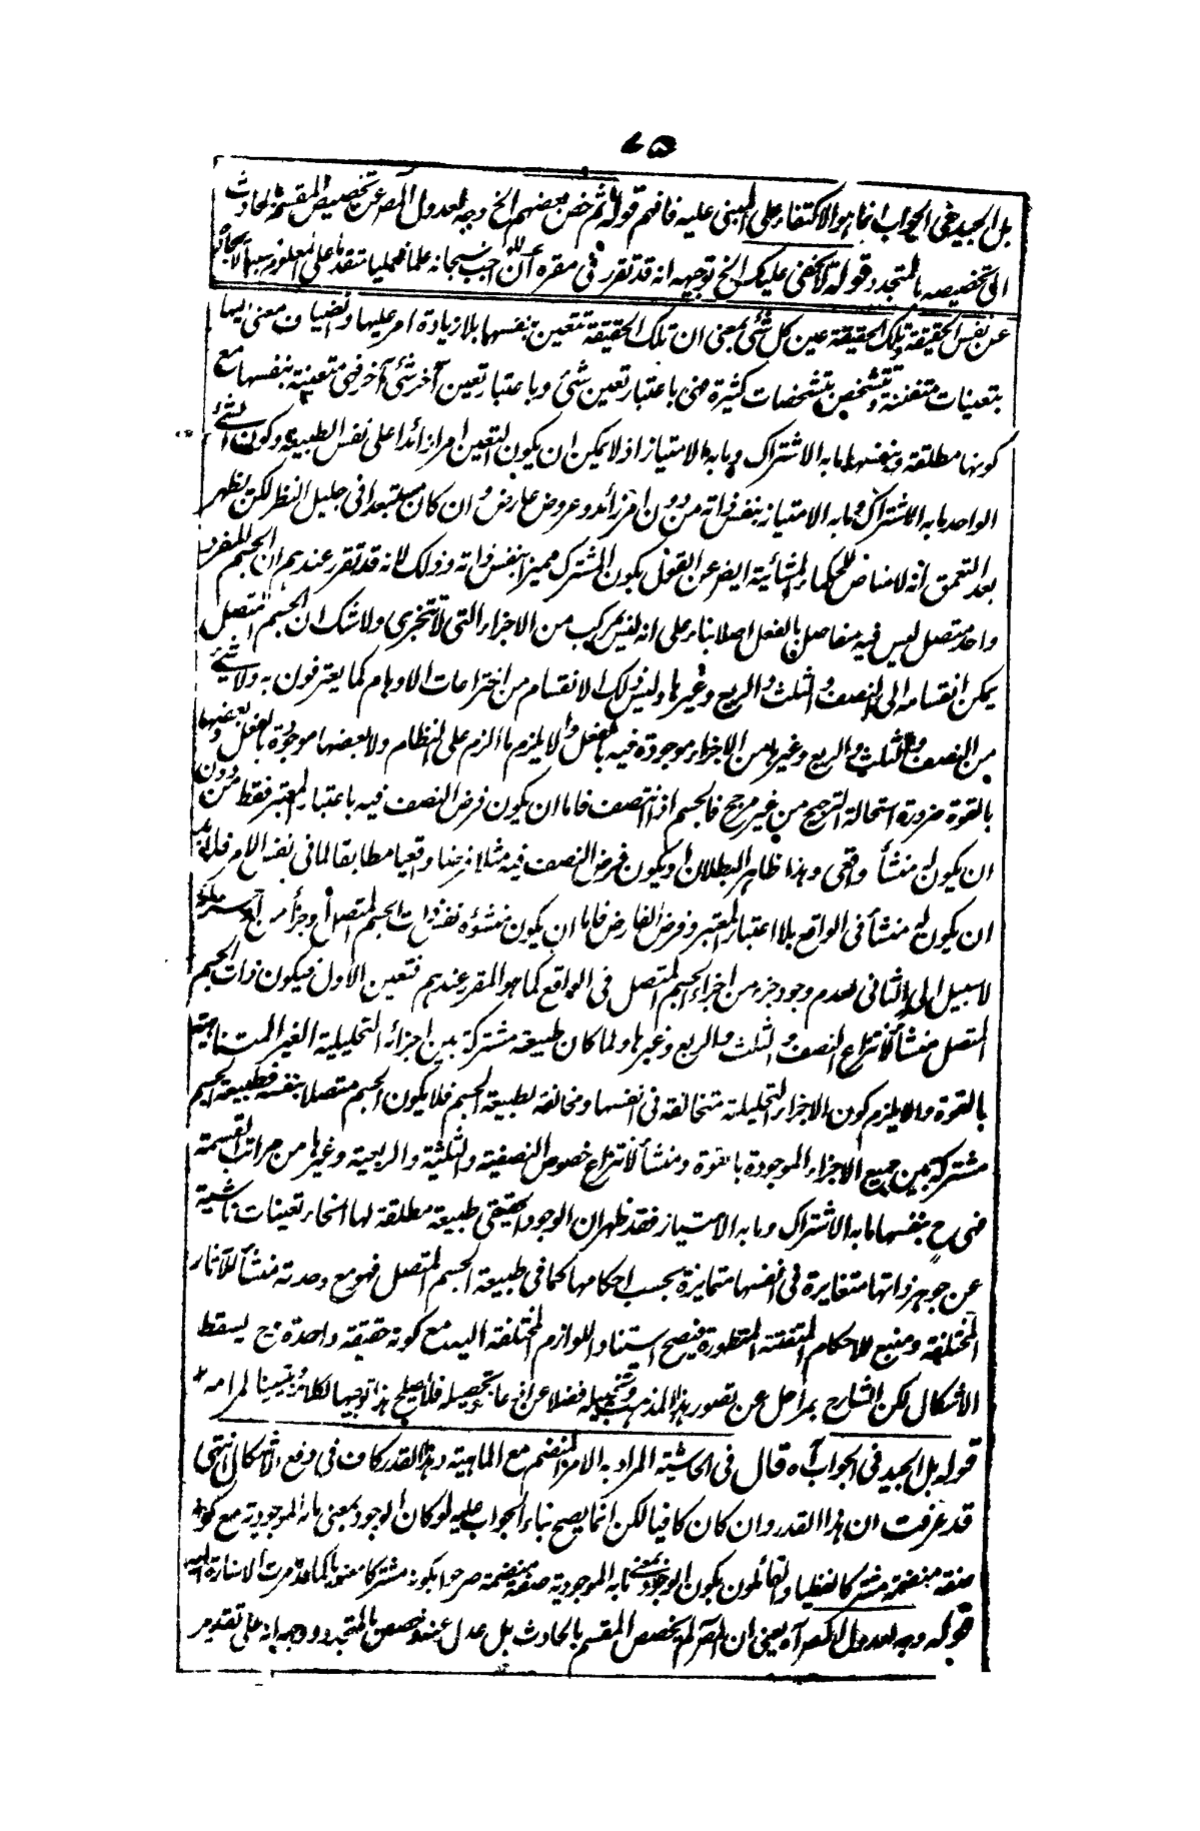 ٧٥
بل الجيد في الجواب انما هو الاكتفاء على المبنى عليه فافهم قوله ثم خص بعضهم الخ وجه العدول المصر عن تخصيص المقسم بالحادث
الى تخصيصه بالمتجدد قوله لا يخفى عليك الخ توجيهه انه قد تقرر في مقره ان للواجب سبحانه علما فعليا متقدما على المعلوم سببا لايجاد
عن نفس الحقيقة وتلك الحقيقة عين كل شئ بمعنى ان تلك الحقيقة تتعين بنفسها بلا زيادة امر عليها وانضياف معنى اليها
بتعينات متفننة وتتشخص بتشخصات كثيرة فهي باعتبار تعين شئ وباعتبار تعين آخر شئ آخر فهي متعينة بنفسها مع
كونها مطلقة وبنفسها ما به الاشتراك وما به الامتياز اذ لا يمكن ان يكون التعين امرا زائدا على نفس الطبيعة وكون الشئ
الواحد ما به الاشتراك وما به الامتياز بنفس ذاته من دون امر زائد وعروض عارض وان كان مستبعدا في جليل النظر لكن يظهر
بعد التعمق انه لا مناص للحكماء المشائية ايضا عن القول بكون المشترك مميزا بنفس ذاته وذلك لانه قد تقرر عندهم ان الجسم المفرد
واحد متصل ليس فيه مفاصل بالفعل اصلا بناء على انه ليس بمركب من الاجزاء التي لا تتجزى ولا شك ان الجسم المتصل
يمكن انقسامه الى النصف والثلث والربع وغيرها وليس ذلك الانقسام من اختراعات الاوهام كما يعترفون به ولا شئ
من النصف والثلث والربع وغيرها من الاجزاء موجودة فيه بالفعل والا يلزم ما الزم على النظام ولا بعضها موجودة بالفعل وبعضها
بالقوة ضرورة استحالة الترجيح من غير مرجح فالجسم اذا انتصف فاما ان يكون فرض النصف فيه باعتبار المعتبر فقط من دون
ان يكون له منشأ واقعي وهذا ظاهر البطلان او يكون فرض النصف فيه مثلا فرضا واقعيا مطابقا لما في نفس الامر فلا بد
ان يكون له منشأ في الواقع بلا اعتبار المعتبر وفرض الفارض فاما ان يكون منشؤه نفس ذات الجسم المتصل او جزأ منه
لا سبيل الى الثاني لعدم وجود جزء من اجزاء الجسم المتصل في الواقع كما هو المقرر عندهم فتعين الاول فيكون ذات الجسم
المتصل منشأ لانتزاع النصف والثلث والربع وغيرها ولما كان طبيعة مشتركة بين اجزائه التحليلية الغير المتناهية
بالقوة والا يلزم كون الاجزاء التحليلية متخالفة في انفسها ومخالفة لطبيعة الجسم فلا يكون الجسم متصلا بنفسه فطبيعة الجسم
مشتركة بين جميع الاجزاء الموجودة بالقوة ومنشأ لانتزاع خصوص النصفية والثلثية والربعية وغيرها من مراتب القسمة
فهي ح بنفسها ما به الاشتراك وما به الامتياز فقد ظهر ان الوجود الحقيقي طبيعة مطلقة لها انحاء تعينات ناشية
عن جوهر ذاتها متغايرة في انفسها متمايزة بحسب احكامها كما في طبيعة الجسم المتصل فهو مع وحدته منشأ للآثار
المختلفة ومنبع للاحكام المتفننة المتطورة فيصح استناد اللوازم المختلفة اليه مع كونه حقيقة واحدة وح يسقط
الاشكال لكن الشارح بمراحل عن تصور هذا المذهب وتخييله فضلا عن اذعانه وتحصيله فلا يصلح هذا توجيها لكلامه وتبيينا لمرامه
قوله بل الجيد في الجواب آه قال في الحاشية المراد به الامر المنضم مع الماهية وهذا القدر كاف في دفع الاشكال انتهى
قد عرفت ان هذا القدر وان كان كافيا لكن انما يصح بناء الجواب عليه لو كان الوجود بمعنى ما به الموجودية مع كونه
صفة منضمة مشتركا لفظيا والقائلون بكون الوجود بمعنى ما به الموجودية صفة منضمة صرحوا بكونه مشتركا معنويا كما قد مرت الاشارة اليه
قوله وجه العدول المصر آه يعني ان المصر لم يخصص المقسم بالحادث بل عدل عنه وخصص بالمتجدد ووجهه انه على تقدير